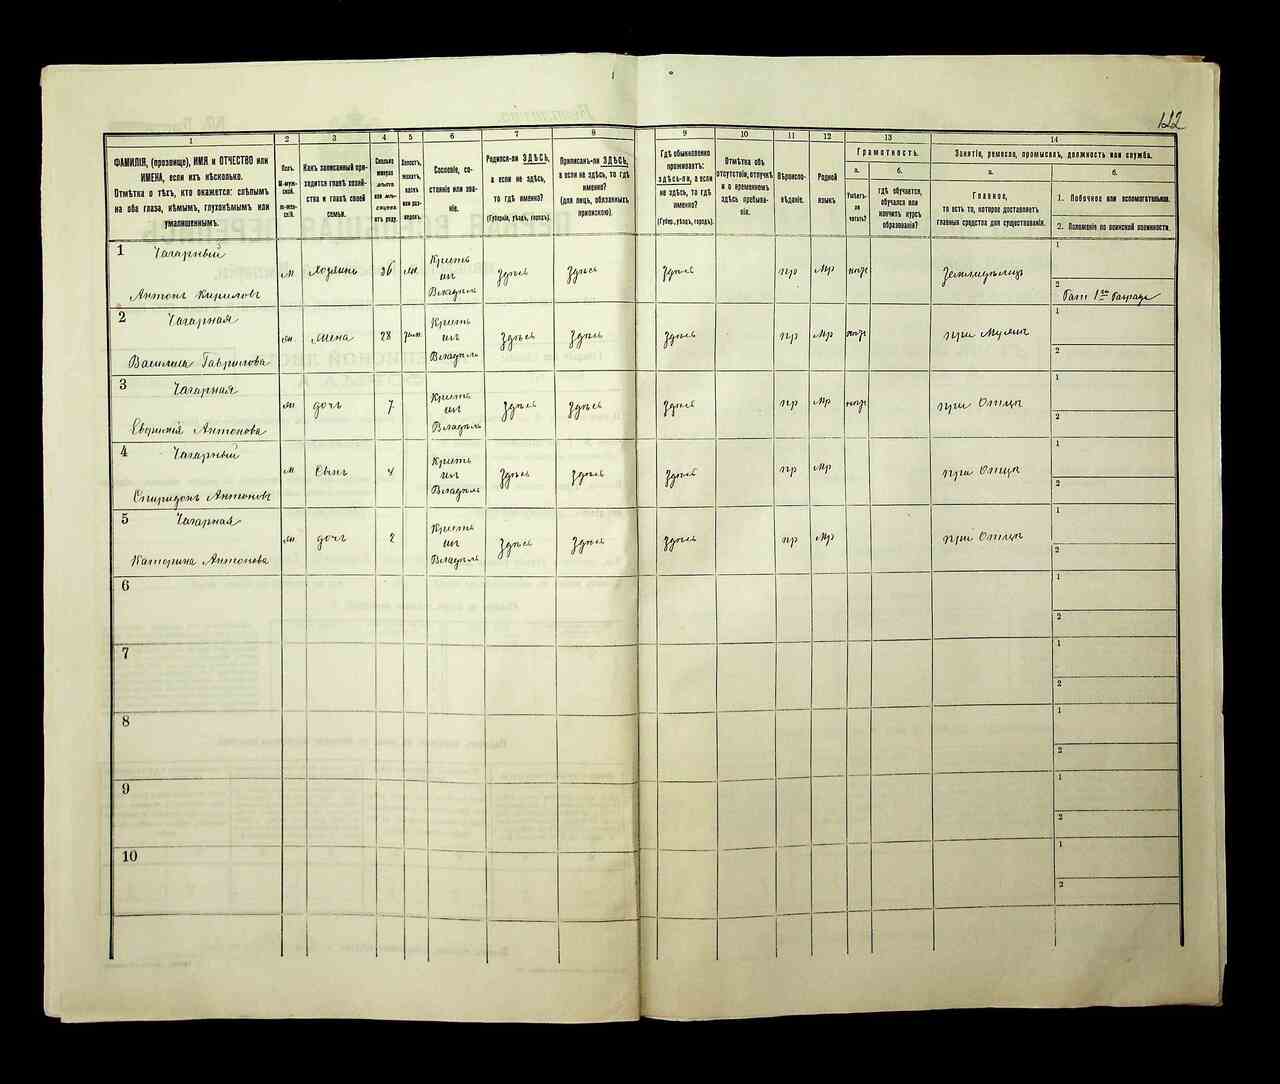 122
1 2 3 4 5 6 7 8 9 10 11 12 13 14
ФАМИЛІЯ, (прозвище), ИМЯ и ОТЧЕСТВО или
ИМЕНА, если ихъ нѣсколько.
Отмѣтка о тѣхъ, кто окажется: слѣпымъ
на оба глаза, нѣмымъ, глухонѣмымъ или
умалишеннымъ.
Полъ.
М-муж-
ской.
Ж-жен-
скій.
Какъ записанный при-
ходится главѣ хозяй-
ства и главѣ своей
семьи.
Сколько
минуло
лѣтъ
или мѣ-
сяцевъ
отъ роду.
Холостъ,
женатъ,
вдовъ
или раз-
веденъ.
Сословіе, со-
стояніе или зва-
ніе.
Родился-ли ЗДѢСЬ,
а если не здѣсь,
то гдѣ именно?
(Губернія, уѣздъ, городъ).
Приписанъ-ли ЗДѢСЬ,
а если не здѣсь, то гдѣ
именно?
(для лицъ, обязанныхъ
припискою).
Гдѣ обыкновенно
проживаетъ:
здѣсь-ли, а если
не здѣсь, то гдѣ
именно?
(Губер., уѣздъ, городъ).
Отмѣтка объ
отсутствіи, отлучкѣ
и о временномъ
здѣсь пребыва-
ніи.
Вѣроиспо-
вѣданіе.
Родной
языкъ
Грамотность.
а.
Умѣетъ-
ли
читать?
б.
гдѣ обучается,
обучался или
кончилъ курсъ
образованія?
Занятіе, ремесло, промыселъ, должность или служба.
а.
Главное,
то есть то, которое доставляетъ
главныя средства для существованія.
б.
1. Побочное или вспомогательное.
2. Положеніе по воинской повинности.
1 Чагарный
Антонъ Кириловъ
м Хозяинъ 36 жен. Крестьянинъ Здѣсь Здѣсь Здѣсь пр Мр Земледѣлецъ
1
2
2 Чагарная
Василиса Гаврилова
ж Жена 28 зам. Здѣсь Здѣсь Здѣсь пр Мр при Мужѣ
1
2
3 Чагарная
Антонова
ж дочь 7 Здѣсь Здѣсь Здѣсь пр Мр при Отцѣ
1
2
4 Чагарный
Спиридонъ Антоновъ
м Сынъ 4 Здѣсь Здѣсь Здѣсь пр Мр при Отцѣ
1
2
5 Чагарная
Катерина Антонова
ж дочь 2 Здѣсь Здѣсь Здѣсь пр Мр при Отцѣ
1
2
6
1
2
7
1
2
8
1
2
9
1
2
10
1
2